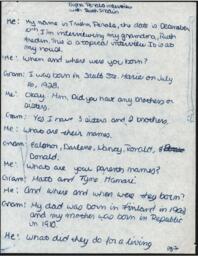 Me: My name is
the date is December
10th I'm interviewing my grandma, Ruth
This is a topical interview. It is at
my house.
Me: When and where were you born?
Gram: I was born in Sault Ste. Marie on July
1928.
Me: Okay. Mm, Did you have any brothers or
sisters.
Gram: Yes I have 3 sisters and 2 brothers.
Me: Whats are their names.
Gram: Darlene, Nancy, Ronald,
Donald.
Me: Whats are your parents names?
Gram: Matt and Tyne Hamari
Me: And where and when were they born?
Gram: My dad was born in Finland in 1903
and my mother was born in Republic
in 1910.
Me: Whats did they do for a living